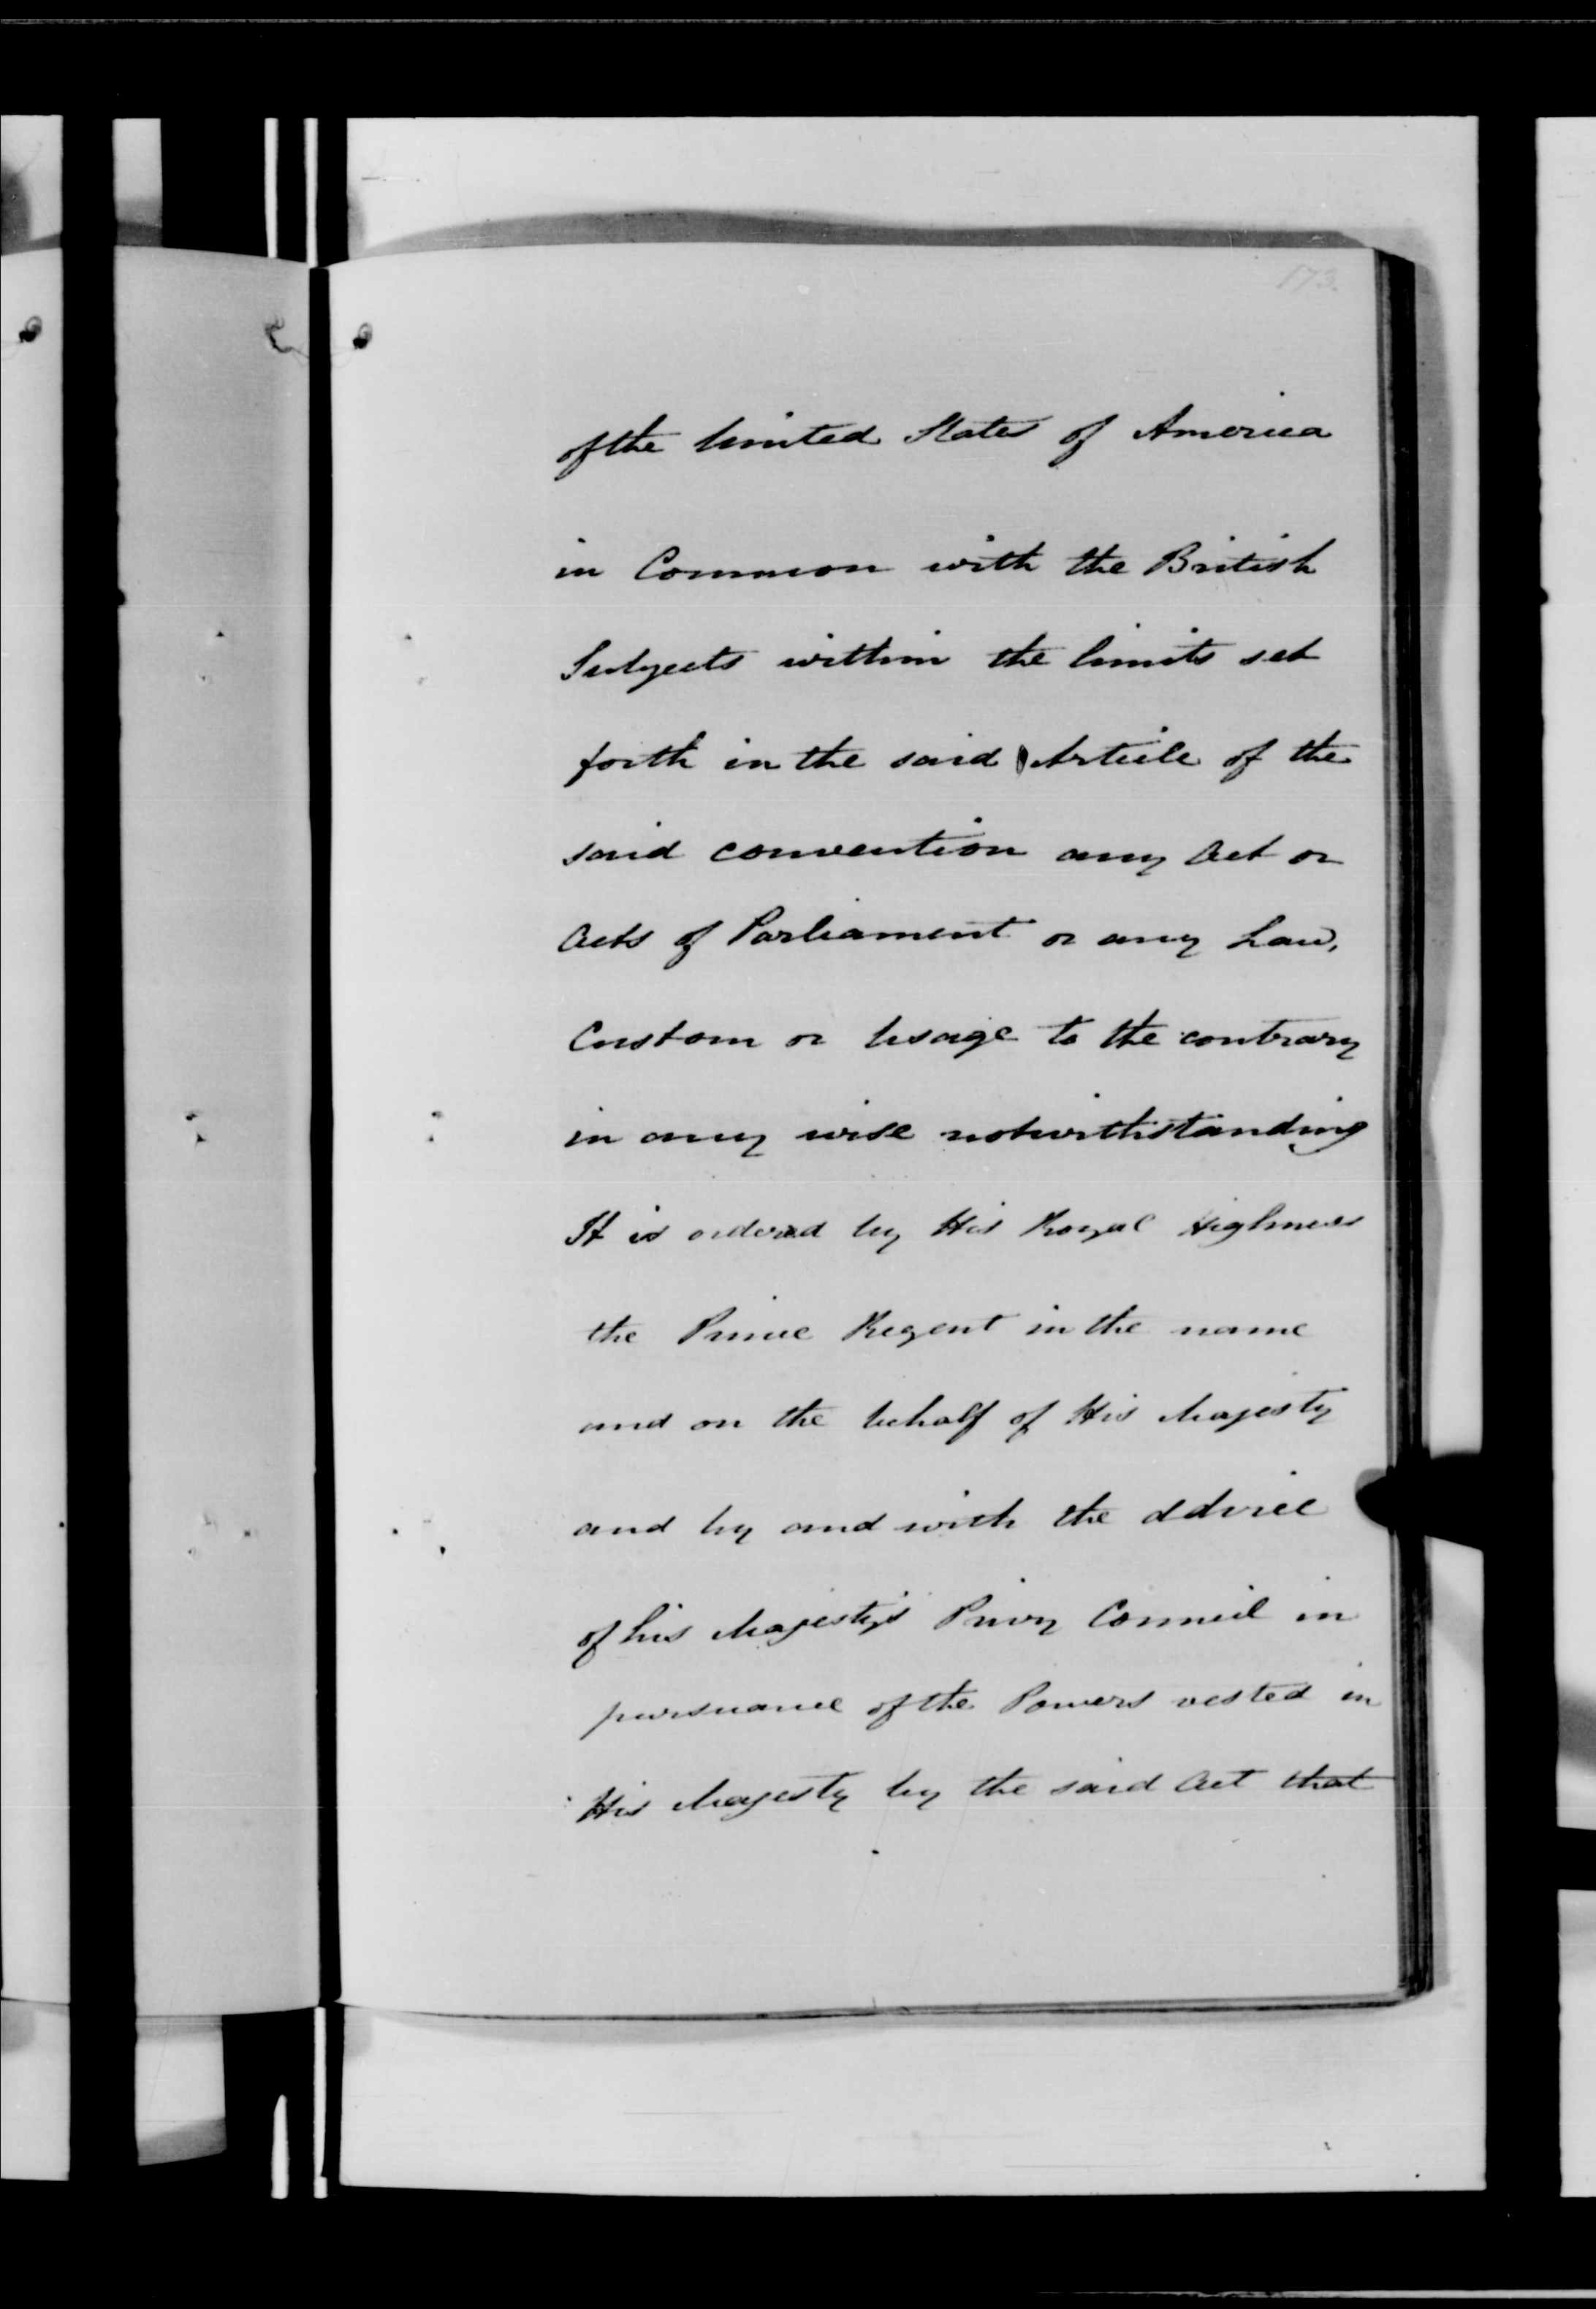 173.
of the United States of America
in Common with the British
Subjects within the limits set
forth in the said Article of the
said convention any Act or
Acts of Parliament or any Law,
Custom or Usage to the contrary
in any wise notwithstanding
It is ordered by His Royal Highness
the Prince Regent in the name
and on the behalf of His Majesty
and by and with the advice
of his Majesty's Privy Council in
pursuance of the Powers vested in
His Majesty by the said Act that